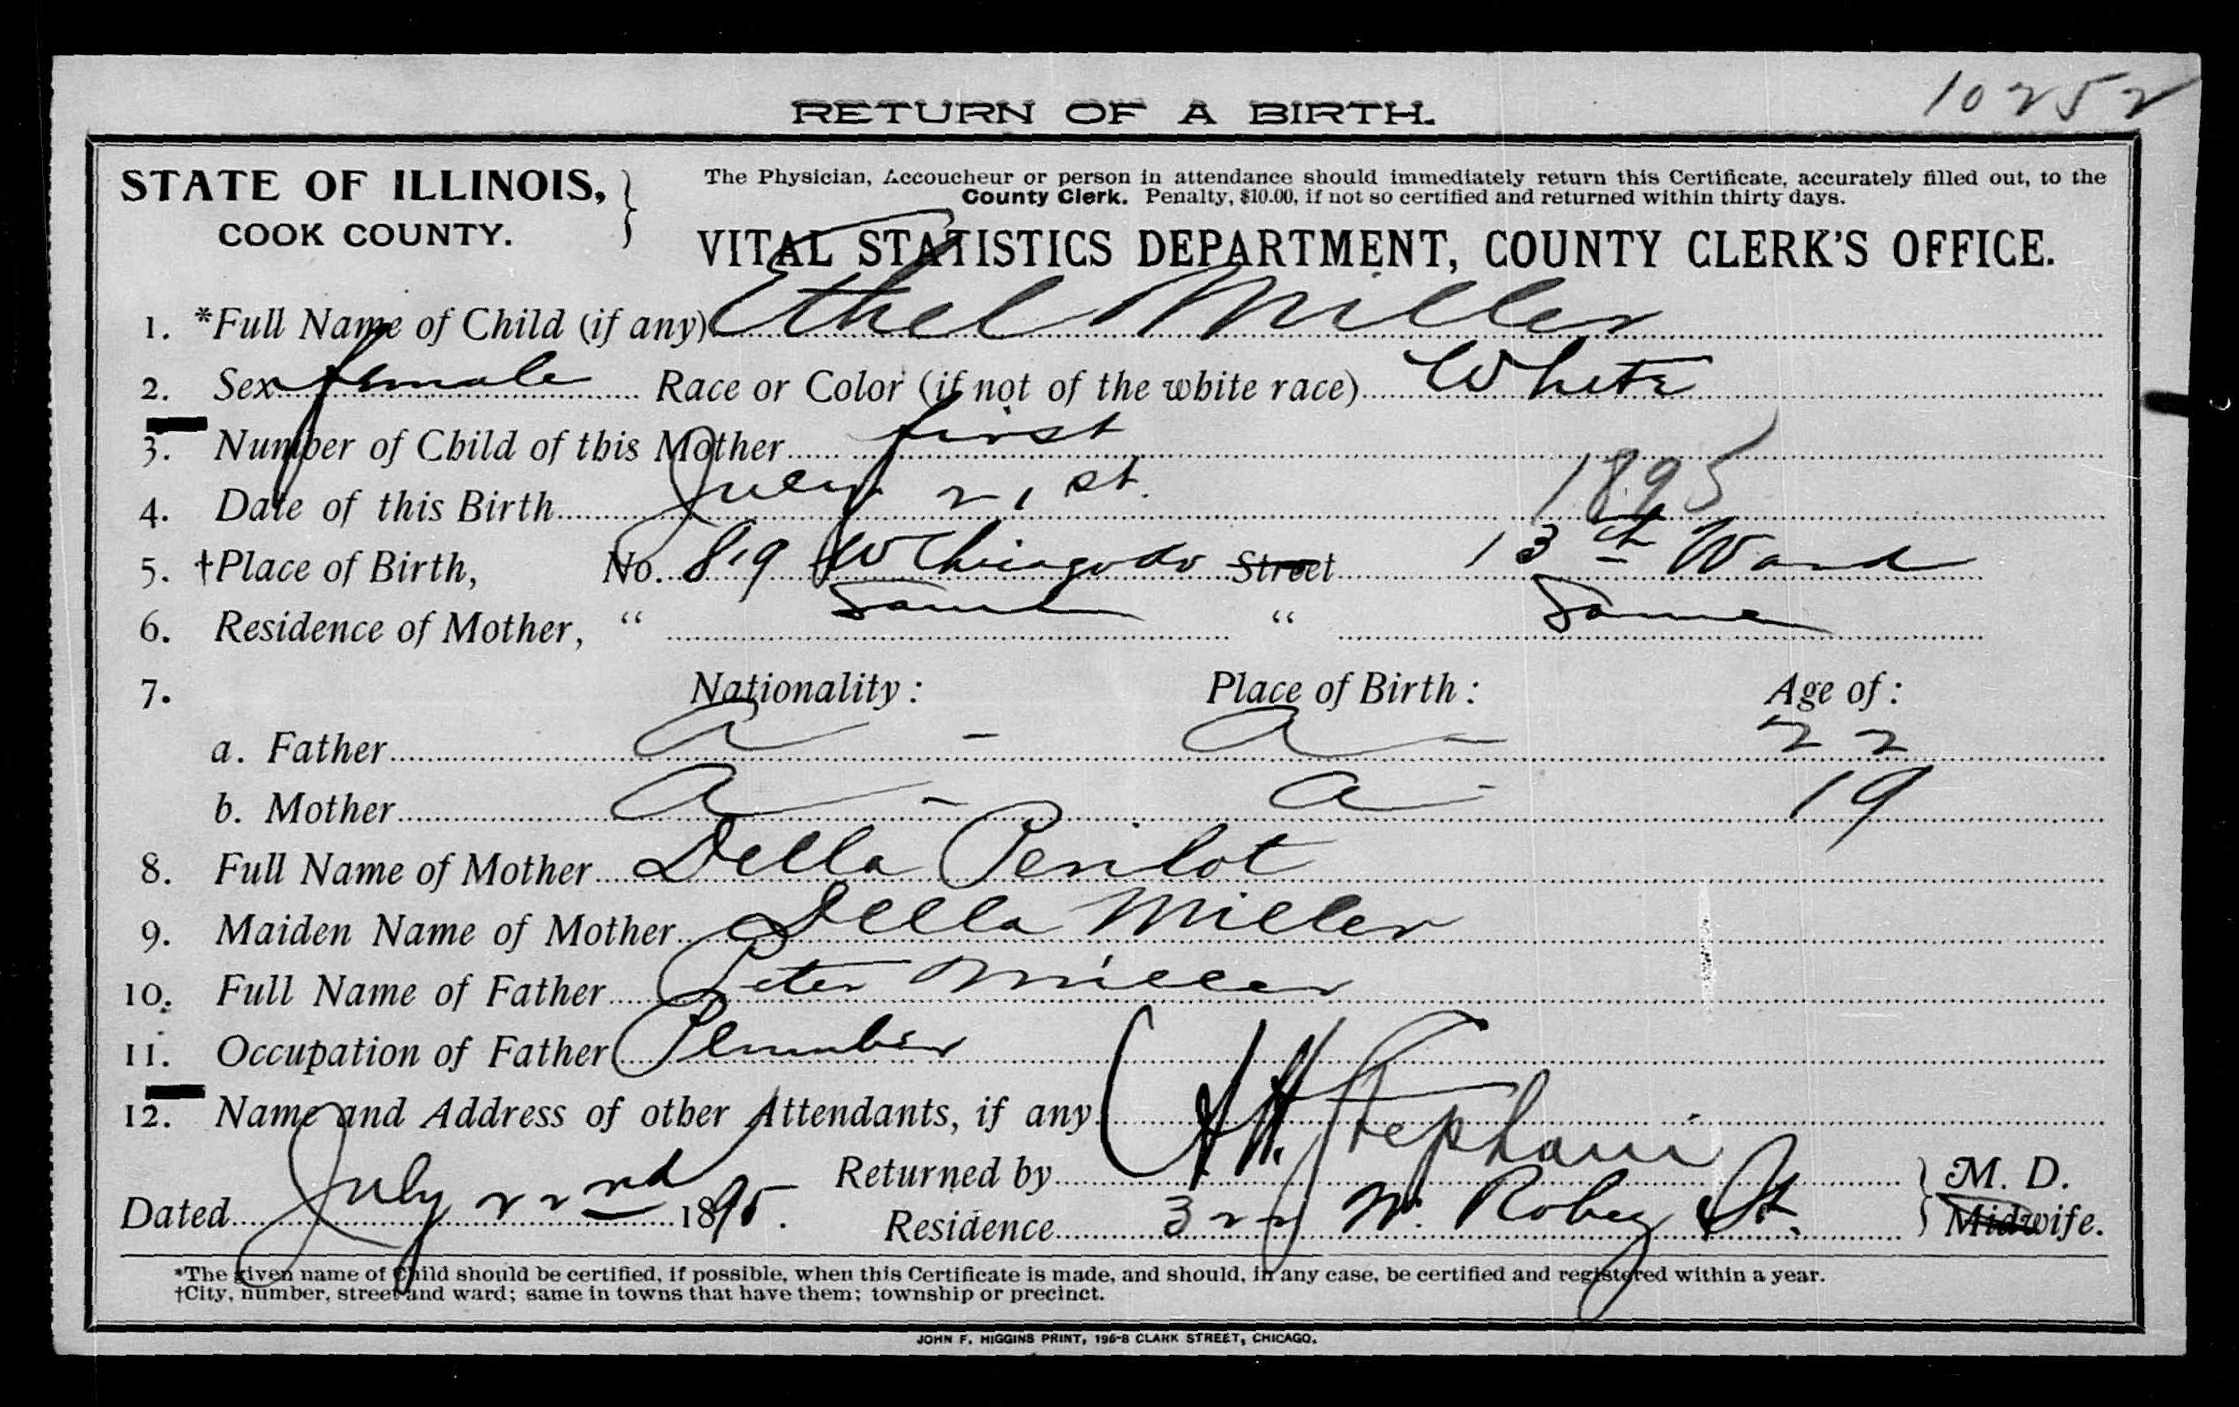 10252
RETURN OF A BIRTH.
STATE OF ILLINOIS,
COOK COUNTY.
The Physician, Accoucheur or person in attendance should immediately return this Certificate, accurately filled out, to the
County Clerk. Penalty, $10.00, if not so certified and returned within thirty days.
VITAL STATISTICS DEPARTMENT, COUNTY CLERK'S OFFICE.
1. *Full Name of Child (if any) Ethel Miller
2. Sex female Race or Color (if not of the white race) White
3. Number of Child of this Mother first
4. Date of this Birth July 21st. 1895
5. †Place of Birth, No. 819 W Chicago Av Street 13th Ward
6. Residence of Mother, " Same " Same
7. Nationality: Place of Birth: Age of:
a. Father A - A - 22
b. Mother A - A - 19
8. Full Name of Mother Della Perilot
9. Maiden Name of Mother Della Miller
10. Full Name of Father Peter Miller
11. Occupation of Father Plumber
12. Name and Address of other Attendants, if any
Returned by Stephani M. D.
Dated July 22nd 1895. Residence N. Robey St. Midwife.
*The given name of Child should be certified, if possible, when this Certificate is made, and should, in any case, be certified and registered within a year.
†City, number, street and ward; same in towns that have them; township or precinct.
JOHN F. HIGGINS PRINT, 196-8 CLARK STREET, CHICAGO.